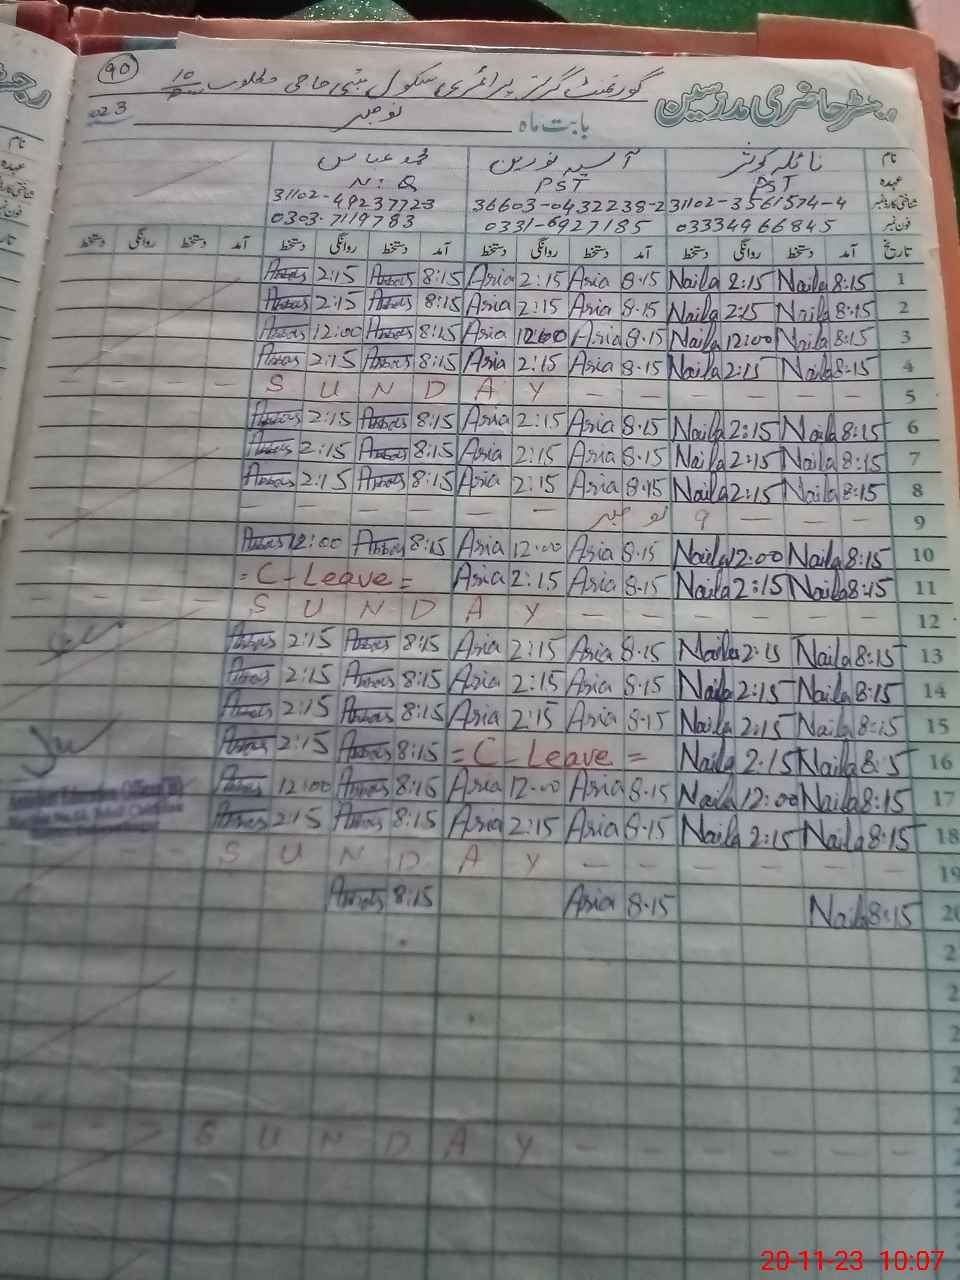 90
رجسٹر حاضری مدرسین
گورنمنٹ گرلز پرائمری سکول بستی حاجی مطلوب
بابت ماہ نومبر 2023
نام نائلہ کوثر آسیہ نورین محمد عباس
عہدہ PST PST N:Q
شناختی کارڈ نمبر 31102-3561574-4 36603-0432238-2 31102-49237723
فون نمبر 03334966845 0331-6927185 0303-7119783
تاریخ آمد دستخط روانگی دستخط آمد دستخط روانگی دستخط آمد دستخط روانگی دستخط آمد دستخط روانگی دستخط
Abbas 2:15 Abbas 8:15 Asia 2:15 Asia 8.15 Naila 2:15 Naila 8:15 1
Abbas 2:15 Abbas 8:15 Asia 2:15 Asia 8.15 Naila 2:15 Naila 8:15 2
Abbas 12:00 Abbas 8:15 Asia 12:00 Asia 8.15 Naila 12:00 Naila 8:15 3
Abbas 2:15 Abbas 8:15 Asia 2:15 Asia 8.15 Naila 2:15 Naila 8:15 4
- - - - S U N D A Y - - - - - - 5
Abbas 2:15 Abbas 8:15 Asia 2:15 Asia 8.15 Naila 2:15 Naila 8:15 6
Abbas 2:15 Abbas 8:15 Asia 2:15 Asia 8.15 Naila 2:15 Naila 8:15 7
Abbas 2:15 Abbas 8:15 Asia 2:15 Asia 8.15 Naila 2:15 Naila 8:15 8
- - - - - - 9 نومبر - - - 9
Abbas 12:00 Abbas 8:15 Asia 12:00 Asia 8.15 Naila 12:00 Naila 8:15 10
= C - Leave = Asia 2:15 Asia 8.15 Naila 2:15 Naila 8:15 11
- - - - S U N D A Y - - - - - - 12
Abbas 2:15 Abbas 8:15 Asia 2:15 Asia 8.15 Naila 2:15 Naila 8:15 13
Abbas 2:15 Abbas 8:15 Asia 2:15 Asia 8.15 Naila 2:15 Naila 8:15 14
Abbas 2:15 Abbas 8:15 Asia 2:15 Asia 8.15 Naila 2:15 Naila 8:15 15
Abbas 2:15 Abbas 8:15 = C - Leave = Naila 2:15 Naila 8:15 16
Abbas 12:00 Abbas 8:15 Asia 12:00 Asia 8.15 Naila 12:00 Naila 8:15 17
Abbas 2:15 Abbas 8:15 Asia 2:15 Asia 8.15 Naila 2:15 Naila 8:15 18
S U N D A Y - - - - - - 19
Abbas 8:15 Asia 8.15 Naila 8:15 20
- - - S U N D A Y - - - - - -
20-11-23 10:07